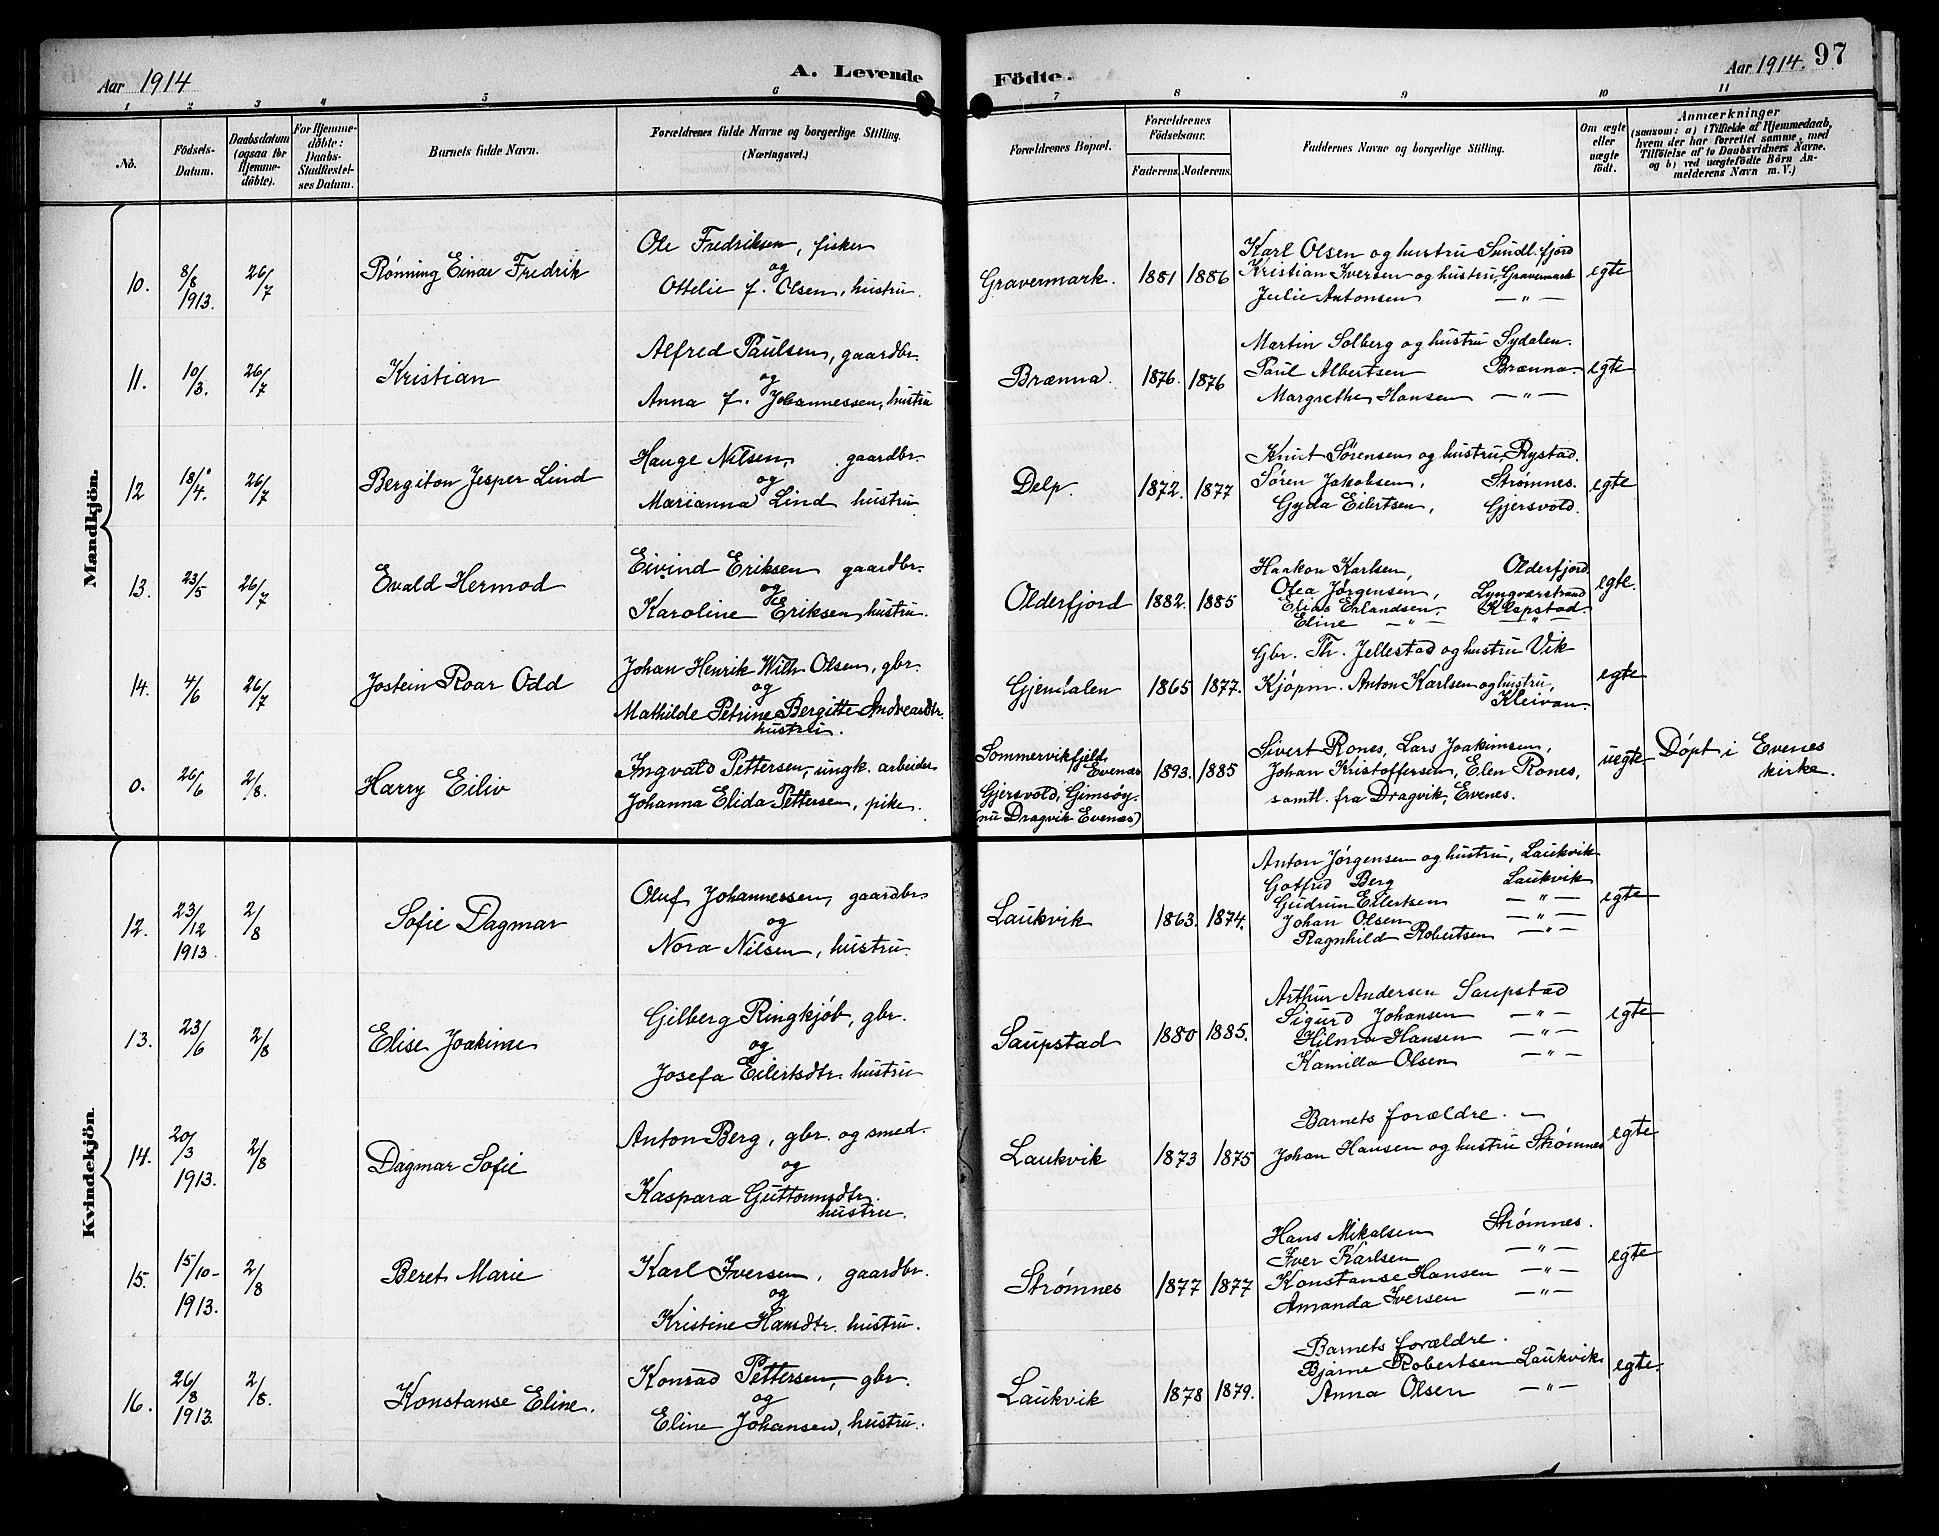 Aar 1914 A. Levende Födte. Aar 1914. 97
1 2 3 4 5 6 7 8 9 10 11
No.
Födsels-Datum.
Daabsdatum (ogsaa for Hjemme-döbte).
For Hjemme-döbte: Daabs-Stadfæstel-ses Datum.
Barnets fulde Navn.
Forældrenes fulde Navne og borgerlige Stilling.
(Næringsvei.)
Forældrenes Bopæl.
Forældrenes Födselsaar.
Faderens. Moderens.
Faddernes Navne og borgerlige Stilling.
Om ægte eller uægte födt.
Anmærkninger
(saasom: a) i Tilfælde af Hjemmedaab,
hvem der har forrettet samme, med
Tilföielse af to Daabsvidners Navne,
og b) ved uægtefödte Börn An-
melderens Navn m. V.)
Mandkjön.
10. 8/8 1913. 26/7 Rønning Einar Fredrik
Ole Fredriksen, fisker
og
Ottelie f. Olsen, hustru.
Gravermark. 1881 1886
Karl Olsen og hustru Sundl.fjord
Kristian Iversen og hustru, Gravermark
Julie Antonsen — " —
egte
11. 10/3. 26/7 Kristian
Alfred Paulsen, gaardbr.
og
Anna f. Johannessen, hustru
Brænna. 1876. 1876
Martin Solberg og hustru Sydalen.
Paul Albertsen Brænna.
Margrethe Hansen — " —
egte
12 18/4. 26/7 Bergiton Jesper Lind
Hauge Nilsen, gaardbr.
og
Marianna Lind hustru
Delp. 1872. 1877
Knut Sørensen og hustru, Rystad.
Søren Jakobsen, Strømnes.
Gyda Eilertsen, Gjersvold.
egte
13. 23/5 26/7 Evald Hermod
Eivind Eriksen gaardbr.
og
Karoline Eriksen, hustru.
Olderfjord 1882. 1885
Haakon Karlsen, Olderfjord
Olea Jørgensen, Lyngværstrand
Elias Erlandsen. Klepstad.
Eline — " — — " —
egte.
14. 4/6 26/7 Jostein Roar Odd
Johan Henrik Wilh. Olsen, gbr.
og
Mathilde Petrine Bergitte Andreasdtr.
hustru.
Gjendalen 1865 1877.
Gbr. Th. Jellestad og hustru Vik
Kjøpm. Anton Karlsen og hustru,
Kleivan.
egte
0. 26/6 2/8. Harry Eiliv
Ingvald Pettersen, ungk. arbeider
Johanna Elida Pettersen, pike.
Sommervikfjeld,
Evenæs
Gjersvold, Gimsøy.
(nu Dragvik Evenæs)
1893. 1885
Sivert Rones, Lars Joakimsen,
Johan Kristoffersen, Elen Rones,
samtl. fra Dragvik, Evenes.
uegte
Døpt i Evenes
kirke.
Kvindekjön.
12. 23/12 1913. 2/8 Sofie Dagmar
Oluf Johannessen, gaardbr.
og
Nora Nilsen, hustru.
Laukvik 1863. 1874.
Anton Jørgensen og hustru, Laukvik
Gotfred Berg Laukvik
Gudrun Eilertsen — " —
Johan Olsen — " —
Ragnhild Robertsen — " —
egte
13. 23/6 2/8 Elise Joakime
Gilberg Ringkjøb, gbr.
og
Josefa Eilertsdtr. hustru
Saupstad 1880 1885.
Arthur Andersen Saupstad
Sigurd Johansen — " —
Hilma Hansen — " —
Kamilla Olsen — " —
egte
14. 20/3 1913. 2/8 Dagmar Sofie
Anton Berg, gbr. og smed.
og
Kaspara Guttormsdtr.
hustru.
Laukvik 1873 1875
Barnets forældre. —
Johan Hansen og hustru Strømnes
egte
15. 15/10- 1913. 2/8 Beret Marie
Karl Iversen, gaardbr.
og
Kristine Hansdtr. hustru.
Strømnes 1877 1877
Hans Mikalsen Strømnes.
Iver Karlsen — " —
Konstanse Hansen — " —
Amanda Iversen — " —
egte
16. 26/8 1913. 2/8. Konstanse Eline.
Konrad Pettersen, gbr.
og
Eline Johansen, hustru.
Laukvik 1878 1879.
Barnets forældre.
Bjarne Robertsen Laukvik
Anna Olsen — " —
egte.